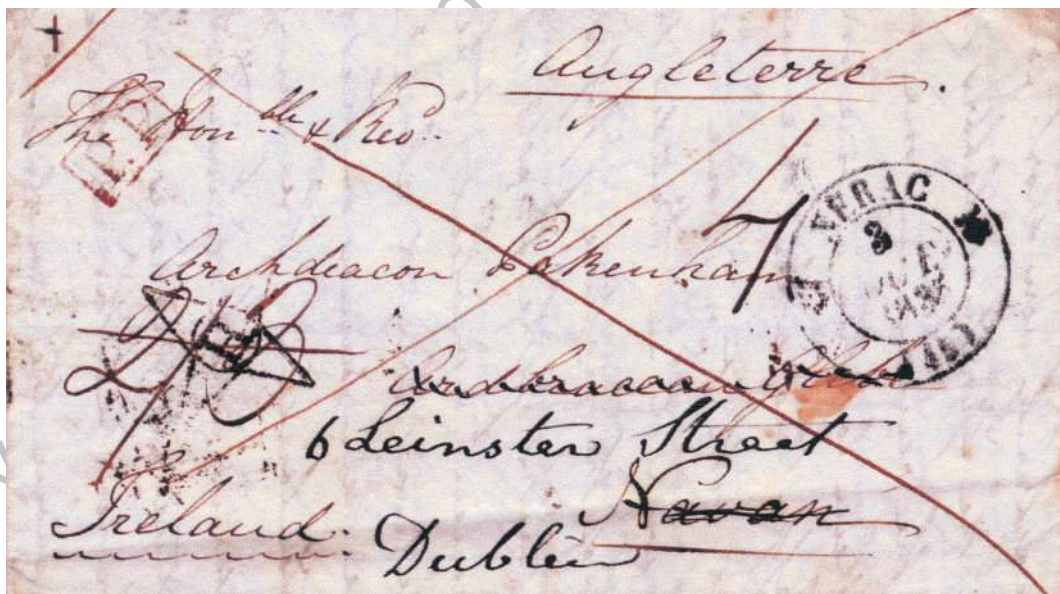 Angleterre.
The Honble & Revd
Archdeacon Pakenham
7
2/3
Ardbraccan Glebe
6 Leinster Street
Navan
Ireland.
Dublin